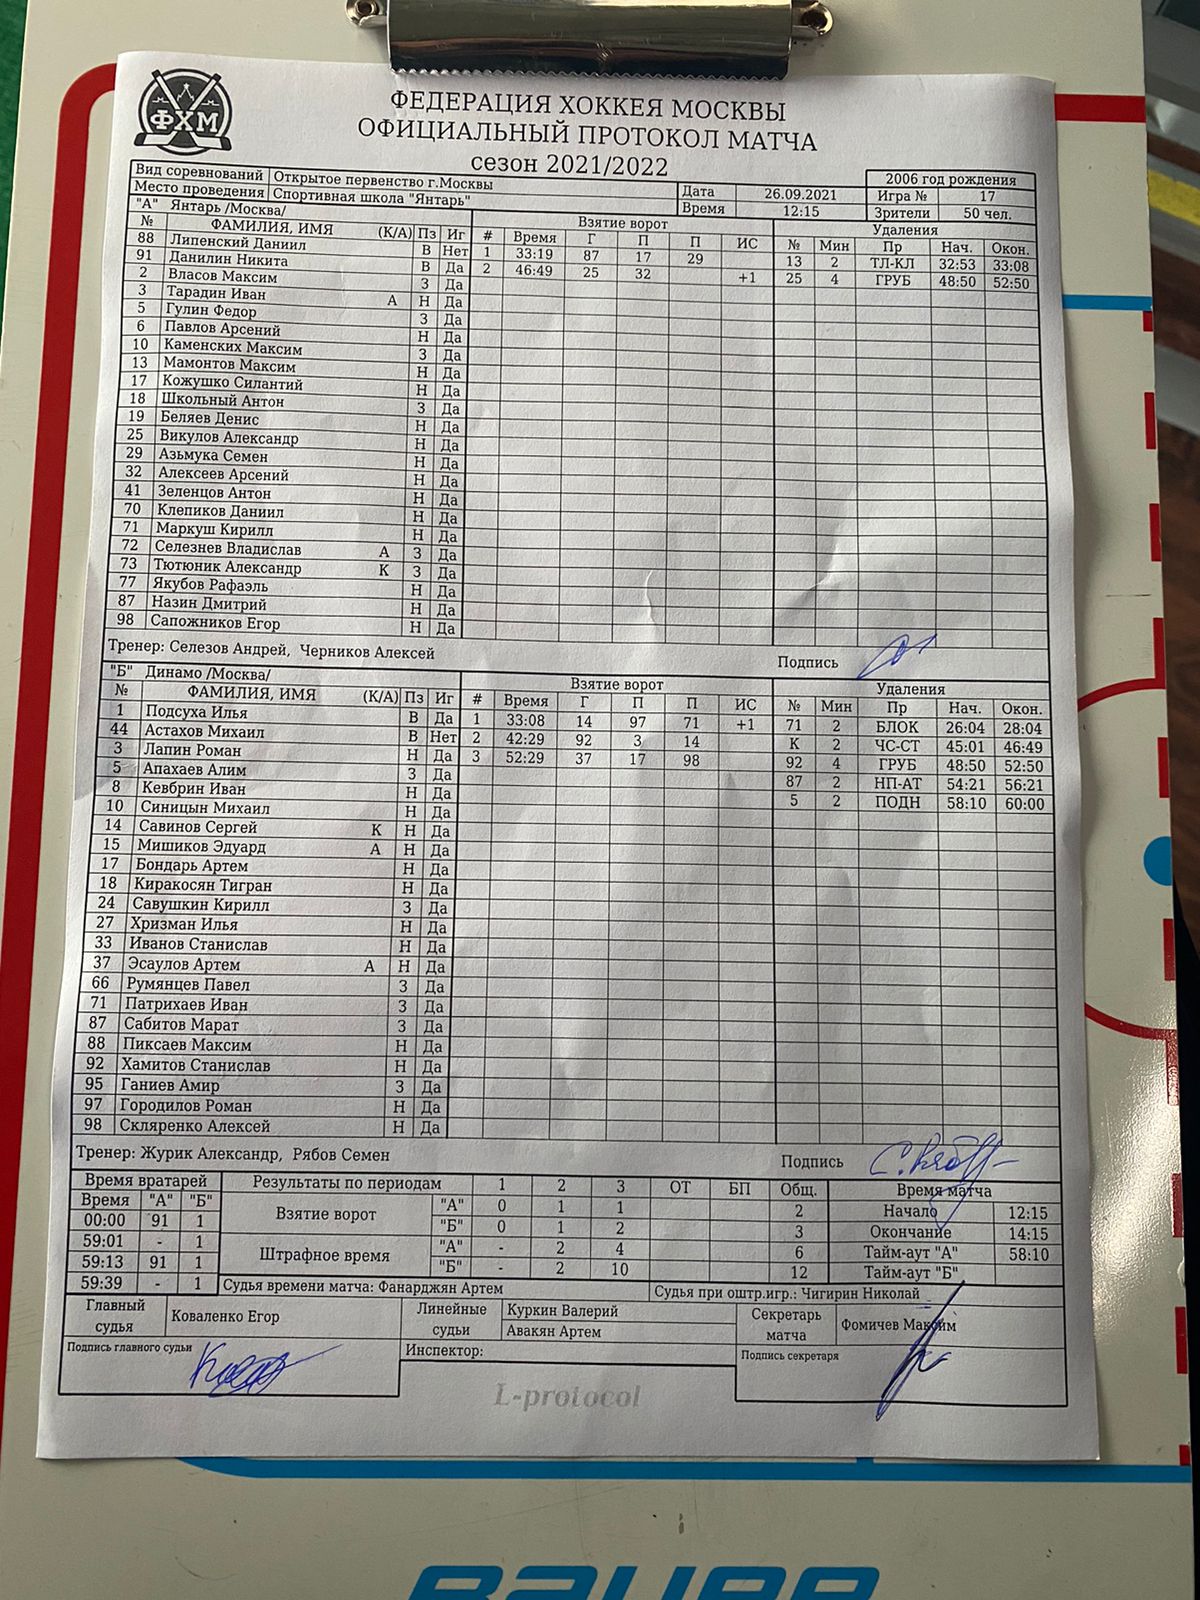 ФХМ
ФЕДЕРАЦИЯ ХОККЕЯ МОСКВЫ
ОФИЦИАЛЬНЫЙ ПРОТОКОЛ МАТЧА
сезон 2021/2022
Вид соревнований Открытое первенство г.Москвы Дата 26.09.2021 2006 год рождения
Место проведения Спортивная школа "Янтарь" Время 12:15 Игра № 17
Зрители 50 чел.
"А" Янтарь /Москва/ Взятие ворот Удаления
№ ФАМИЛИЯ, ИМЯ (К/А) Пз Иг # Время Г П П ИС № Мин Пр Нач. Окон.
88 Липенский Даниил В Нет 1 33:19 87 17 29 13 2 ТЛ-КЛ 32:53 33:08
91 Данилин Никита В Да 2 46:49 25 32 +1 25 4 ГРУБ 48:50 52:50
2 Власов Максим З Да
3 Тарадин Иван А Н Да
5 Гулин Федор З Да
6 Павлов Арсений Н Да
10 Каменских Максим З Да
13 Мамонтов Максим Н Да
17 Кожушко Силантий Н Да
18 Школьный Антон З Да
19 Беляев Денис Н Да
25 Викулов Александр Н Да
29 Азьмука Семен Н Да
32 Алексеев Арсений Н Да
41 Зеленцов Антон Н Да
70 Клепиков Даниил Н Да
71 Маркуш Кирилл Н Да
72 Селезнев Владислав А З Да
73 Тютюник Александр К З Да
77 Якубов Рафаэль Н Да
87 Назин Дмитрий Н Да
98 Сапожников Егор Н Да
Тренер: Селезов Андрей, Черников Алексей Подпись
"Б" Динамо /Москва/ Взятие ворот Удаления
№ ФАМИЛИЯ, ИМЯ (К/А) Пз Иг # Время Г П П ИС № Мин Пр Нач. Окон.
1 Подсуха Илья В Да 1 33:08 14 97 71 +1 71 2 БЛОК 26:04 28:04
44 Астахов Михаил В Нет 2 42:29 92 3 14 К 2 ЧС-СТ 45:01 46:49
3 Лапин Роман Н Да 3 52:29 37 17 98 92 4 ГРУБ 48:50 52:50
5 Апахаев Алим З Да 87 2 НП-АТ 54:21 56:21
8 Кевбрин Иван Н Да 5 2 ПОДН 58:10 60:00
10 Синицын Михаил Н Да
14 Савинов Сергей К Н Да
15 Мишиков Эдуард А Н Да
17 Бондарь Артем Н Да
18 Киракосян Тигран Н Да
24 Савушкин Кирилл З Да
27 Хризман Илья Н Да
33 Иванов Станислав Н Да
37 Эсаулов Артем А Н Да
66 Румянцев Павел З Да
71 Патрихаев Иван З Да
87 Сабитов Марат З Да
88 Пиксаев Максим Н Да
92 Хамитов Станислав Н Да
95 Ганиев Амир З Да
97 Городилов Роман Н Да
98 Скляренко Алексей Н Да
Тренер: Журик Александр, Рябов Семен Подпись
Время вратарей Результаты по периодам 1 2 3 ОТ БП Общ. Время матча
Время "А" "Б" Взятие ворот "А" 0 1 1 2 Начало 12:15
00:00 91 1 "Б" 0 1 2 3 Окончание 14:15
59:01 - 1 Штрафное время "А" - 2 4 6 Тайм-аут "А" 58:10
59:13 91 1 "Б" - 2 10 12 Тайм-аут "Б"
59:39 - 1 Судья времени матча: Фанарджян Артем Судья при оштр.игр.: Чигирин Николай
Главный судья Коваленко Егор Линейные судьи Куркин Валерий Секретарь матча Фомичев Максим
Авакян Артем
Подпись главного судьи Инспектор: Подпись секретаря
L-protocol
BAUER